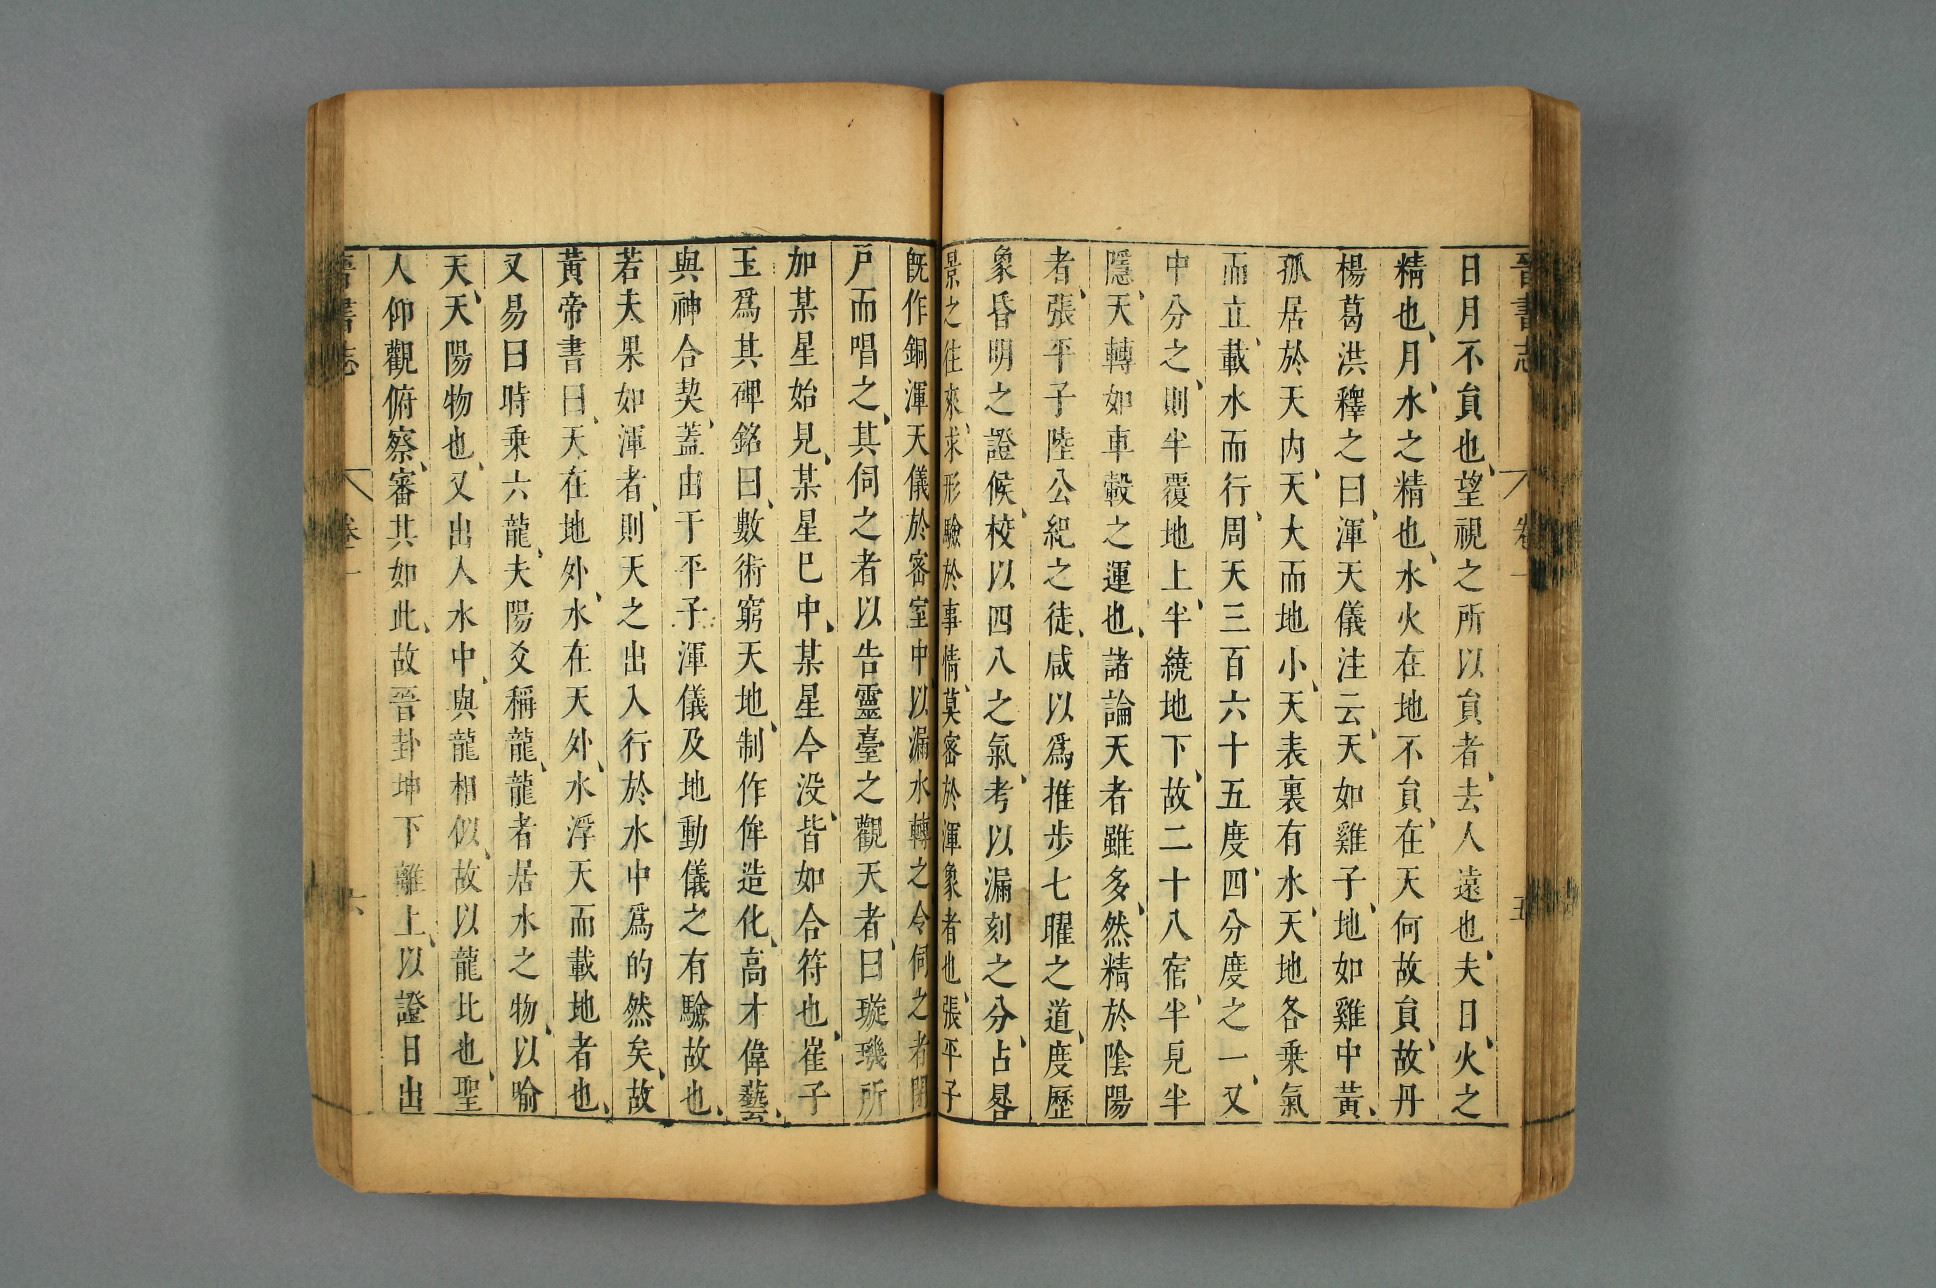 晉書志 卷一 五
日月不貟也望視之所以貟者去人遠也夫日火之
精也月水之精也水火在地不貟在天何故貟故丹
楊葛洪釋之曰渾天儀注云天如雞子地如雞中黃
孤居於天內天大而地小天表裏有水天地各乗氣
而立載水而行周天三百六十五度四分度之一又
中分之則半覆地上半繞地下故二十八宿半見半
隱天轉如車轂之運也諸論天者雖多然精於陰陽
者張平子陸公紀之徒咸以爲推步七曜之道度歷
象昏明之證候校以四八之氣考以漏刻之分占晷
景之往來求形驗於事情莫密於渾象者也張平子
旣作銅渾天儀於密室中以漏水轉之令伺之者閉
戸而唱之其伺之者以告靈臺之觀天者曰璇璣所
加某星始見某星巳中某星今没皆如合符也崔子
玉爲其碑銘曰數術窮天地制作侔造化高才偉藝
與神合契蓋由于平子渾儀及地動儀之有驗故也
若夫果如渾者則天之出入行於水中爲的然矣故
黃帝書曰天在地外水在天外水浮天而載地者也
又易曰時乗六龍夫陽爻稱龍龍者居水之物以喻
天天陽物也又出入水中與龍相似故以龍比也聖
人仰觀俯察審其如此故晉卦坤下離上以證日出
晉書志 卷一 六